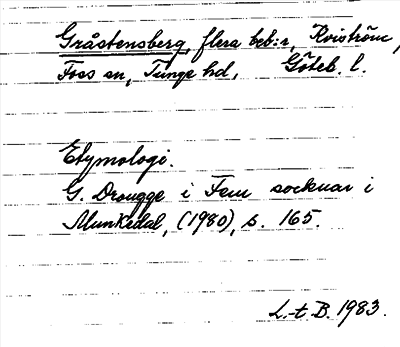 Gråstensberg, flera beb:r, Kviström,
Foss sn, Tunge hd, Göteb. l.
Etymologi.
G. Drougge i Fem socknar i
Munkedal, (1980), s. 165.
L.-t B. 1983.